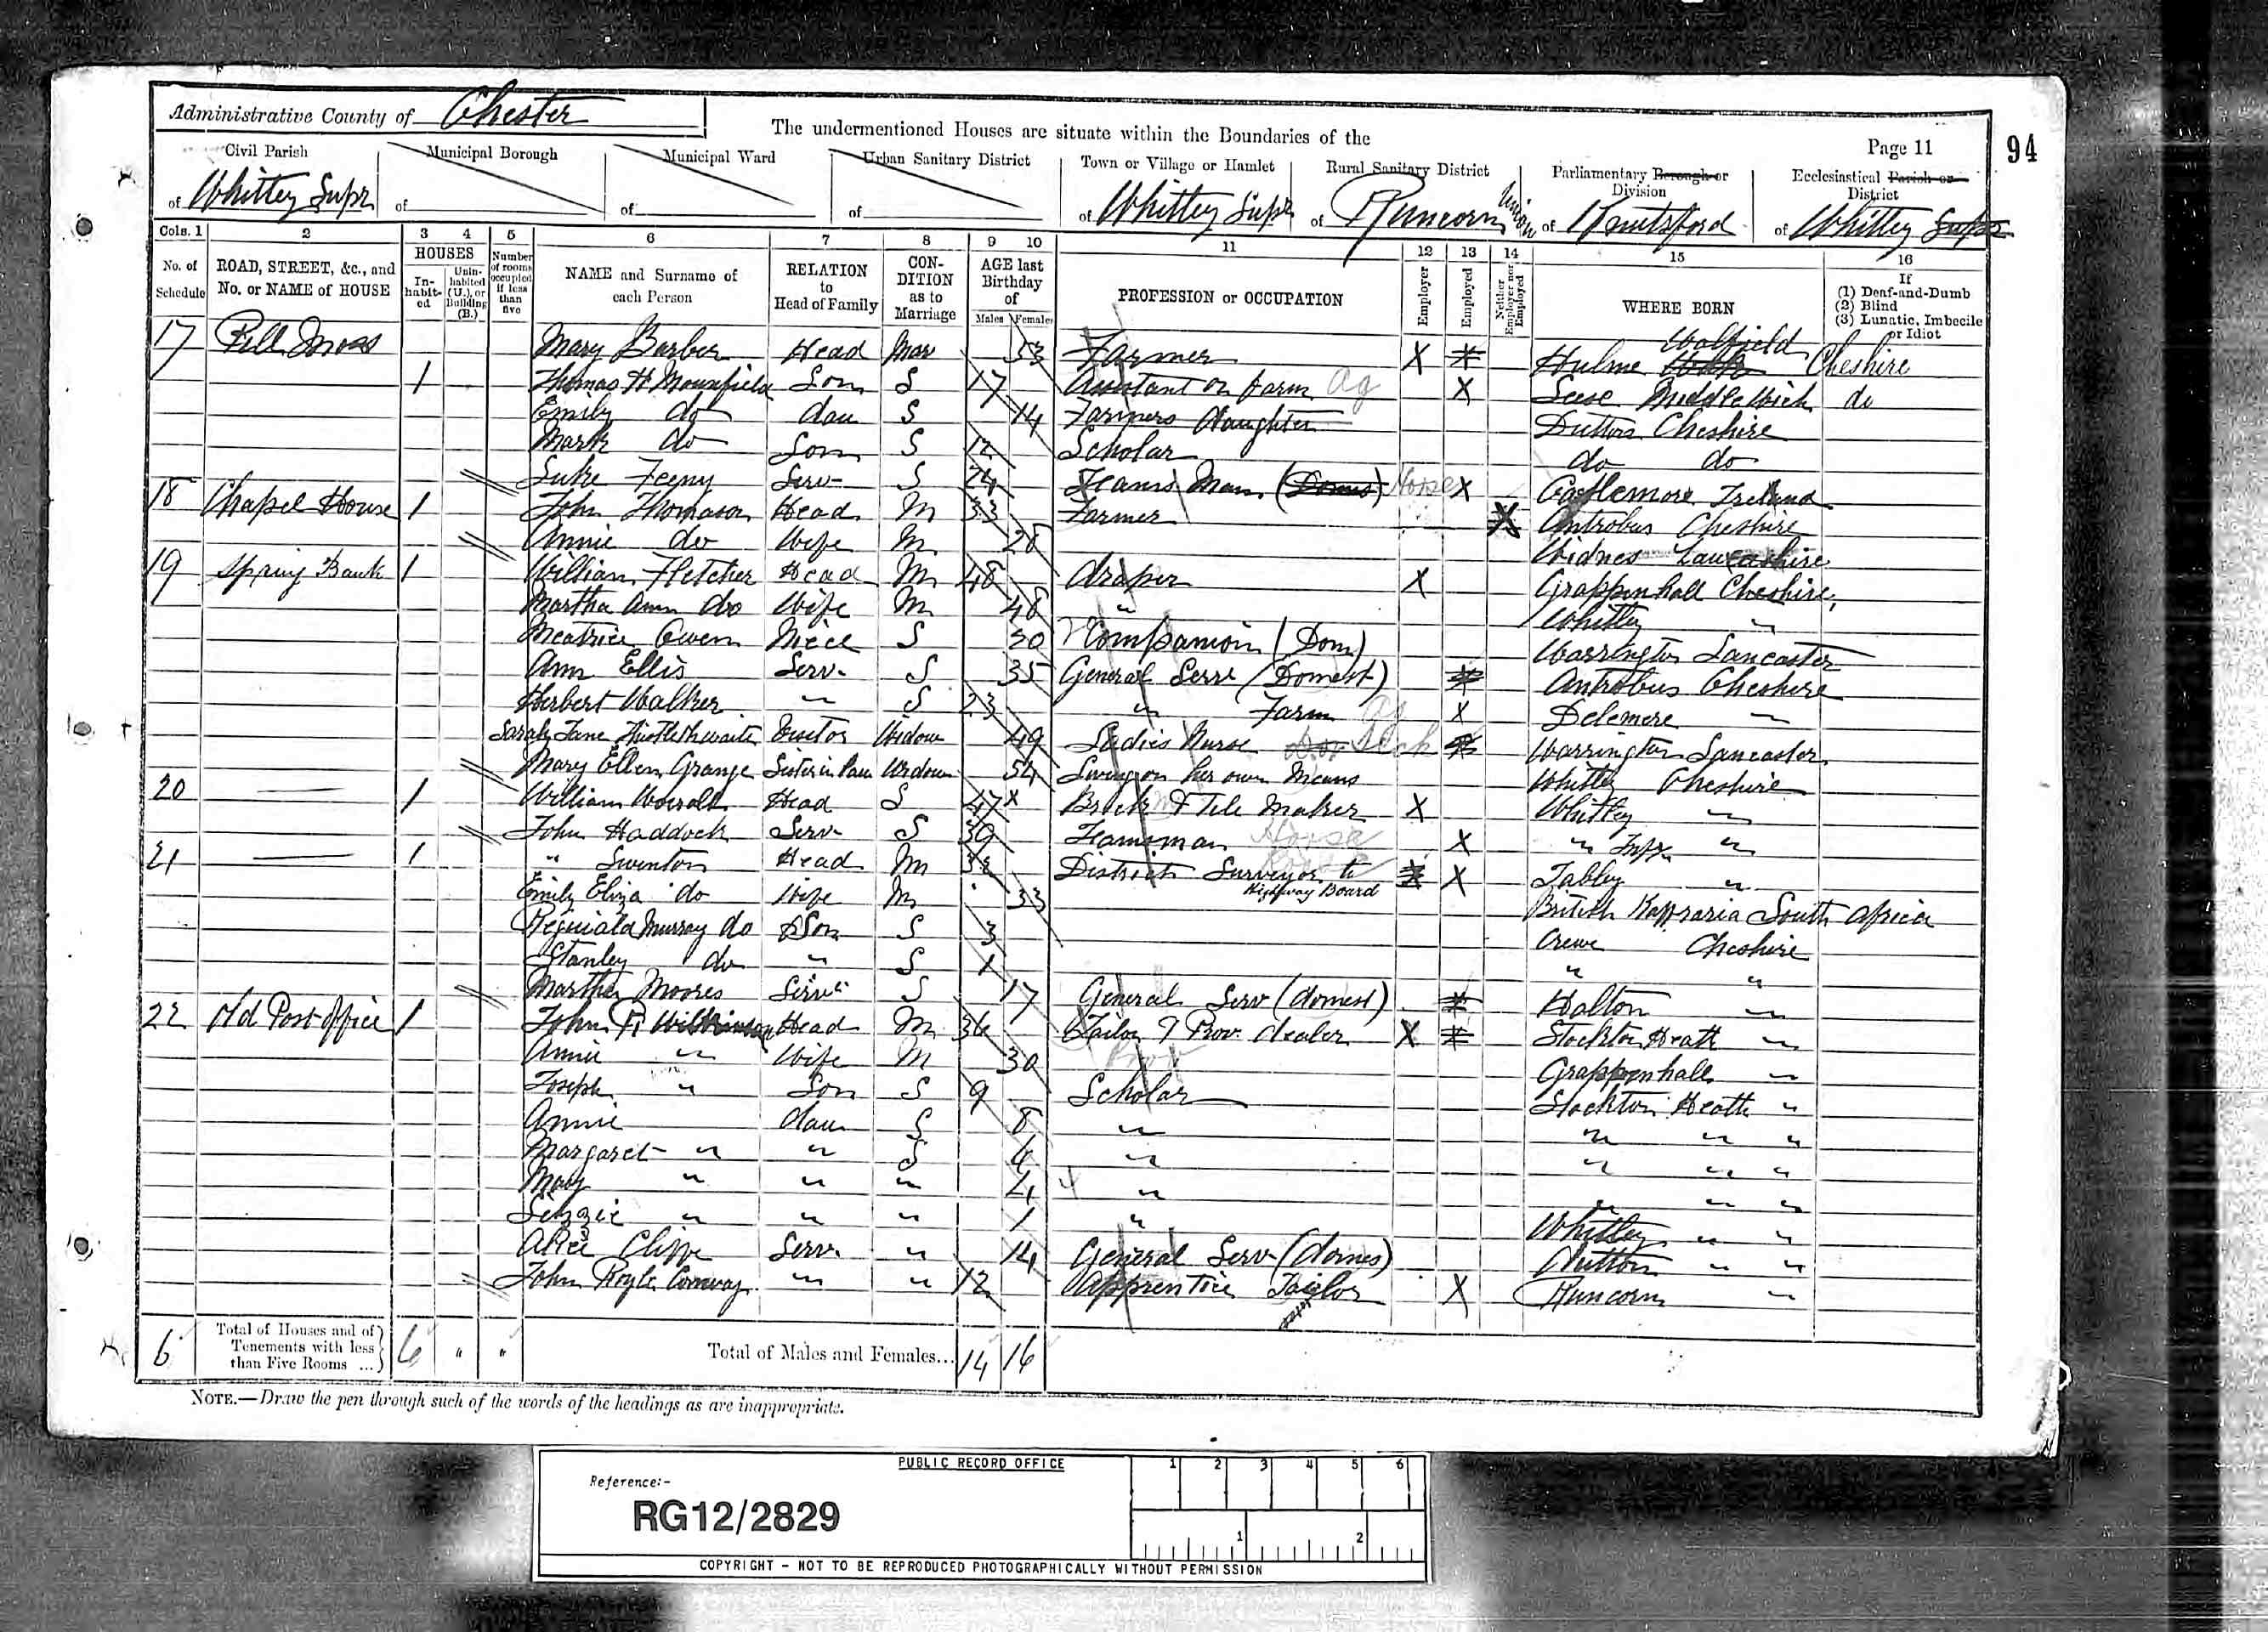 Administrative County of Chester
The undermentioned Houses are situate within the Boundaries of the
Page 11
94
Civil Parish of Whitley Supr
Municipal Borough of
Municipal Ward of
Urban Sanitary District of
Town or Village or Hamlet of Whitley Supr
Rural Sanitary District of Runcorn Union
Parliamentary Borough or Division of Knutsford
Ecclesiastical Parish or District of Whitley Supr
Cols. 1 2 3 4 5 6 7 8 9 10 11 12 13 14 15 16
No. of Schedule
ROAD, STREET, &c., and No. or NAME of HOUSE
HOUSES
Inhabited
Uninhabited (U.), or Building (B.)
Number of rooms occupied if less than five
NAME and Surname of each Person
RELATION to Head of Family
CONDITION as to Marriage
AGE last Birthday of
Males Females
PROFESSION or OCCUPATION
Employer
Employed
Neither Employer nor Employed
WHERE BORN
If (1) Deaf-and-Dumb (2) Blind (3) Lunatic, Imbecile or Idiot
17 Pill Moss Mary Barber Head Mar 53 Farmer X X Hulme Walfield Cheshire
1 Thomas H. Mounfield Son S 17 Assistant on farm Ag X Lese Middlewich do
Emily do dau S 14 Farmers daughter Dutton Cheshire
Mark do Son S 12 Scholar do do
Luke Feeny Serv S 24 Teams Man (Doms) Horse X Ireland
18 Chapel House 1 John Thomason Head M 33 Farmer X Antrobus Cheshire
Annie do Wife M 28 Widnes Lancashire
19 Spring Bank 1 William Fletcher Head M 48 draper X Grappenhall Cheshire,
Martha Ann do Wife M 48 " Whitley "
Meatrice Owen Niece S 20 Companion (Dom) Warrington Lancaster
Ann Ellis Serv. S 35 General Serv (Domest) X Antrobus Cheshire
Herbert Walker " S 23 " Farm Ag X Delemere "
Sarah Jane Thistlethwaite Visitor Widow 49 Ladies Nurse X Warrington Lancaster
Mary Ellen Grange Sister in law Widow 54 Living on her own Means Whitley Cheshire
20 — 1 William Worrall Head S 47 X Brick & Tile Maker X Whitley "
John Haddock Serv S 39 Teamsman Horse X " Supr "
21 — 1 " Swenton Head M 32 District Surveyor to Highway Board X X Tabley "
Emily Eliza do Wife M 33 British Kaffraria South Africa
Reginald Murray do Son S 3 Crewe Cheshire
Stanley do " S 1 " "
Martha Moores Serv S 17 General Serv (domest) X Halton "
22 Old Post Office 1 John R Wilkinson Head M 36 Tailor & Prov. dealer X X Stockton Heath "
Annie " Wife M 30 Grappenhall "
Joseph " Son S 9 Scholar Stockton Heath "
Annie dau S 8 " " " "
Margaret " " S 4 " " " "
Mary " " " 4 " " " "
Lizzie " " " 1 " Whitley " "
Alice Clippe Serv. " 14 General Serv (domes) Dutton " "
John Royle Conway " " 12 Apprentice Tailor X Runcorn "
6 Total of Houses and of Tenements with less than Five Rooms ... 6 " " Total of Males and Females... 14 16
NOTE.—Draw the pen through such of the words of the headings as are inappropriate.
PUBLIC RECORD OFFICE
1 2 3 4 5 6
Reference:-
RG12/2829
1 2
COPYRIGHT - NOT TO BE REPRODUCED PHOTOGRAPHICALLY WITHOUT PERMISSION